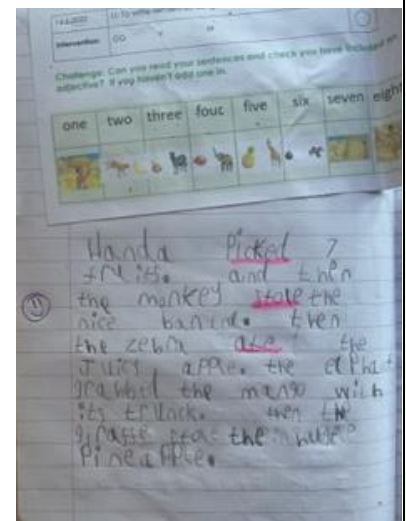 Intervention:
Challenge: Can you read your sentences and check you have included an
adjective? If you haven't add one in.
one two three four five six seven eigh
Handa Picked 7
fruits. and then
the monkey stole the
nice banana. then
the zebra ate the
Juicy apple. the
grabbed the mango with
its trunck. then the
giraffe stole the
Pineapple.